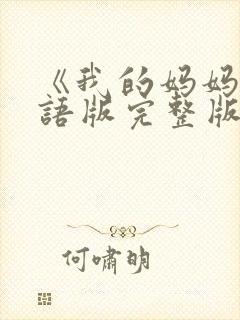 《我的妈妈
語版完整版
何嘯明